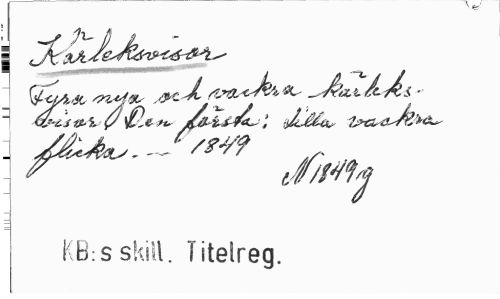 Kärleksvisor
Fyra nya och vackra kärleks-
visor. Den första: Lilla vackra
flicka. — 1849
N 1849 g
KB:s skill. Titelreg.